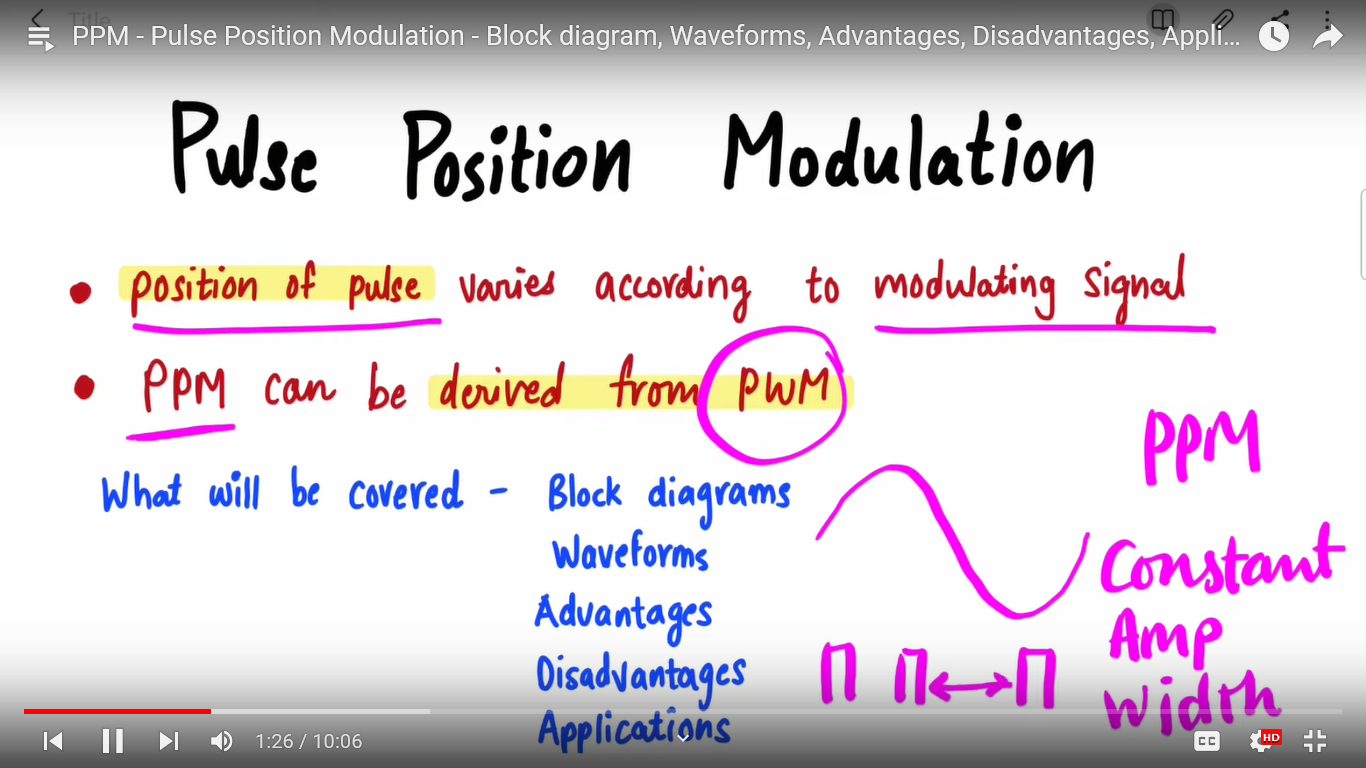 Title
PPM - Pulse Position Modulation - Block diagram, Waveforms, Advantages, Disadvantages, Appli...
Pulse Position Modulation
• position of pulse varies according to modulating signal
• PPM can be derived from PWM
PPM
What will be covered - Block diagrams
Waveforms
Constant
Advantages
Amp
Disadvantages
Width
Applications
1:26 / 10:06
CC
HD